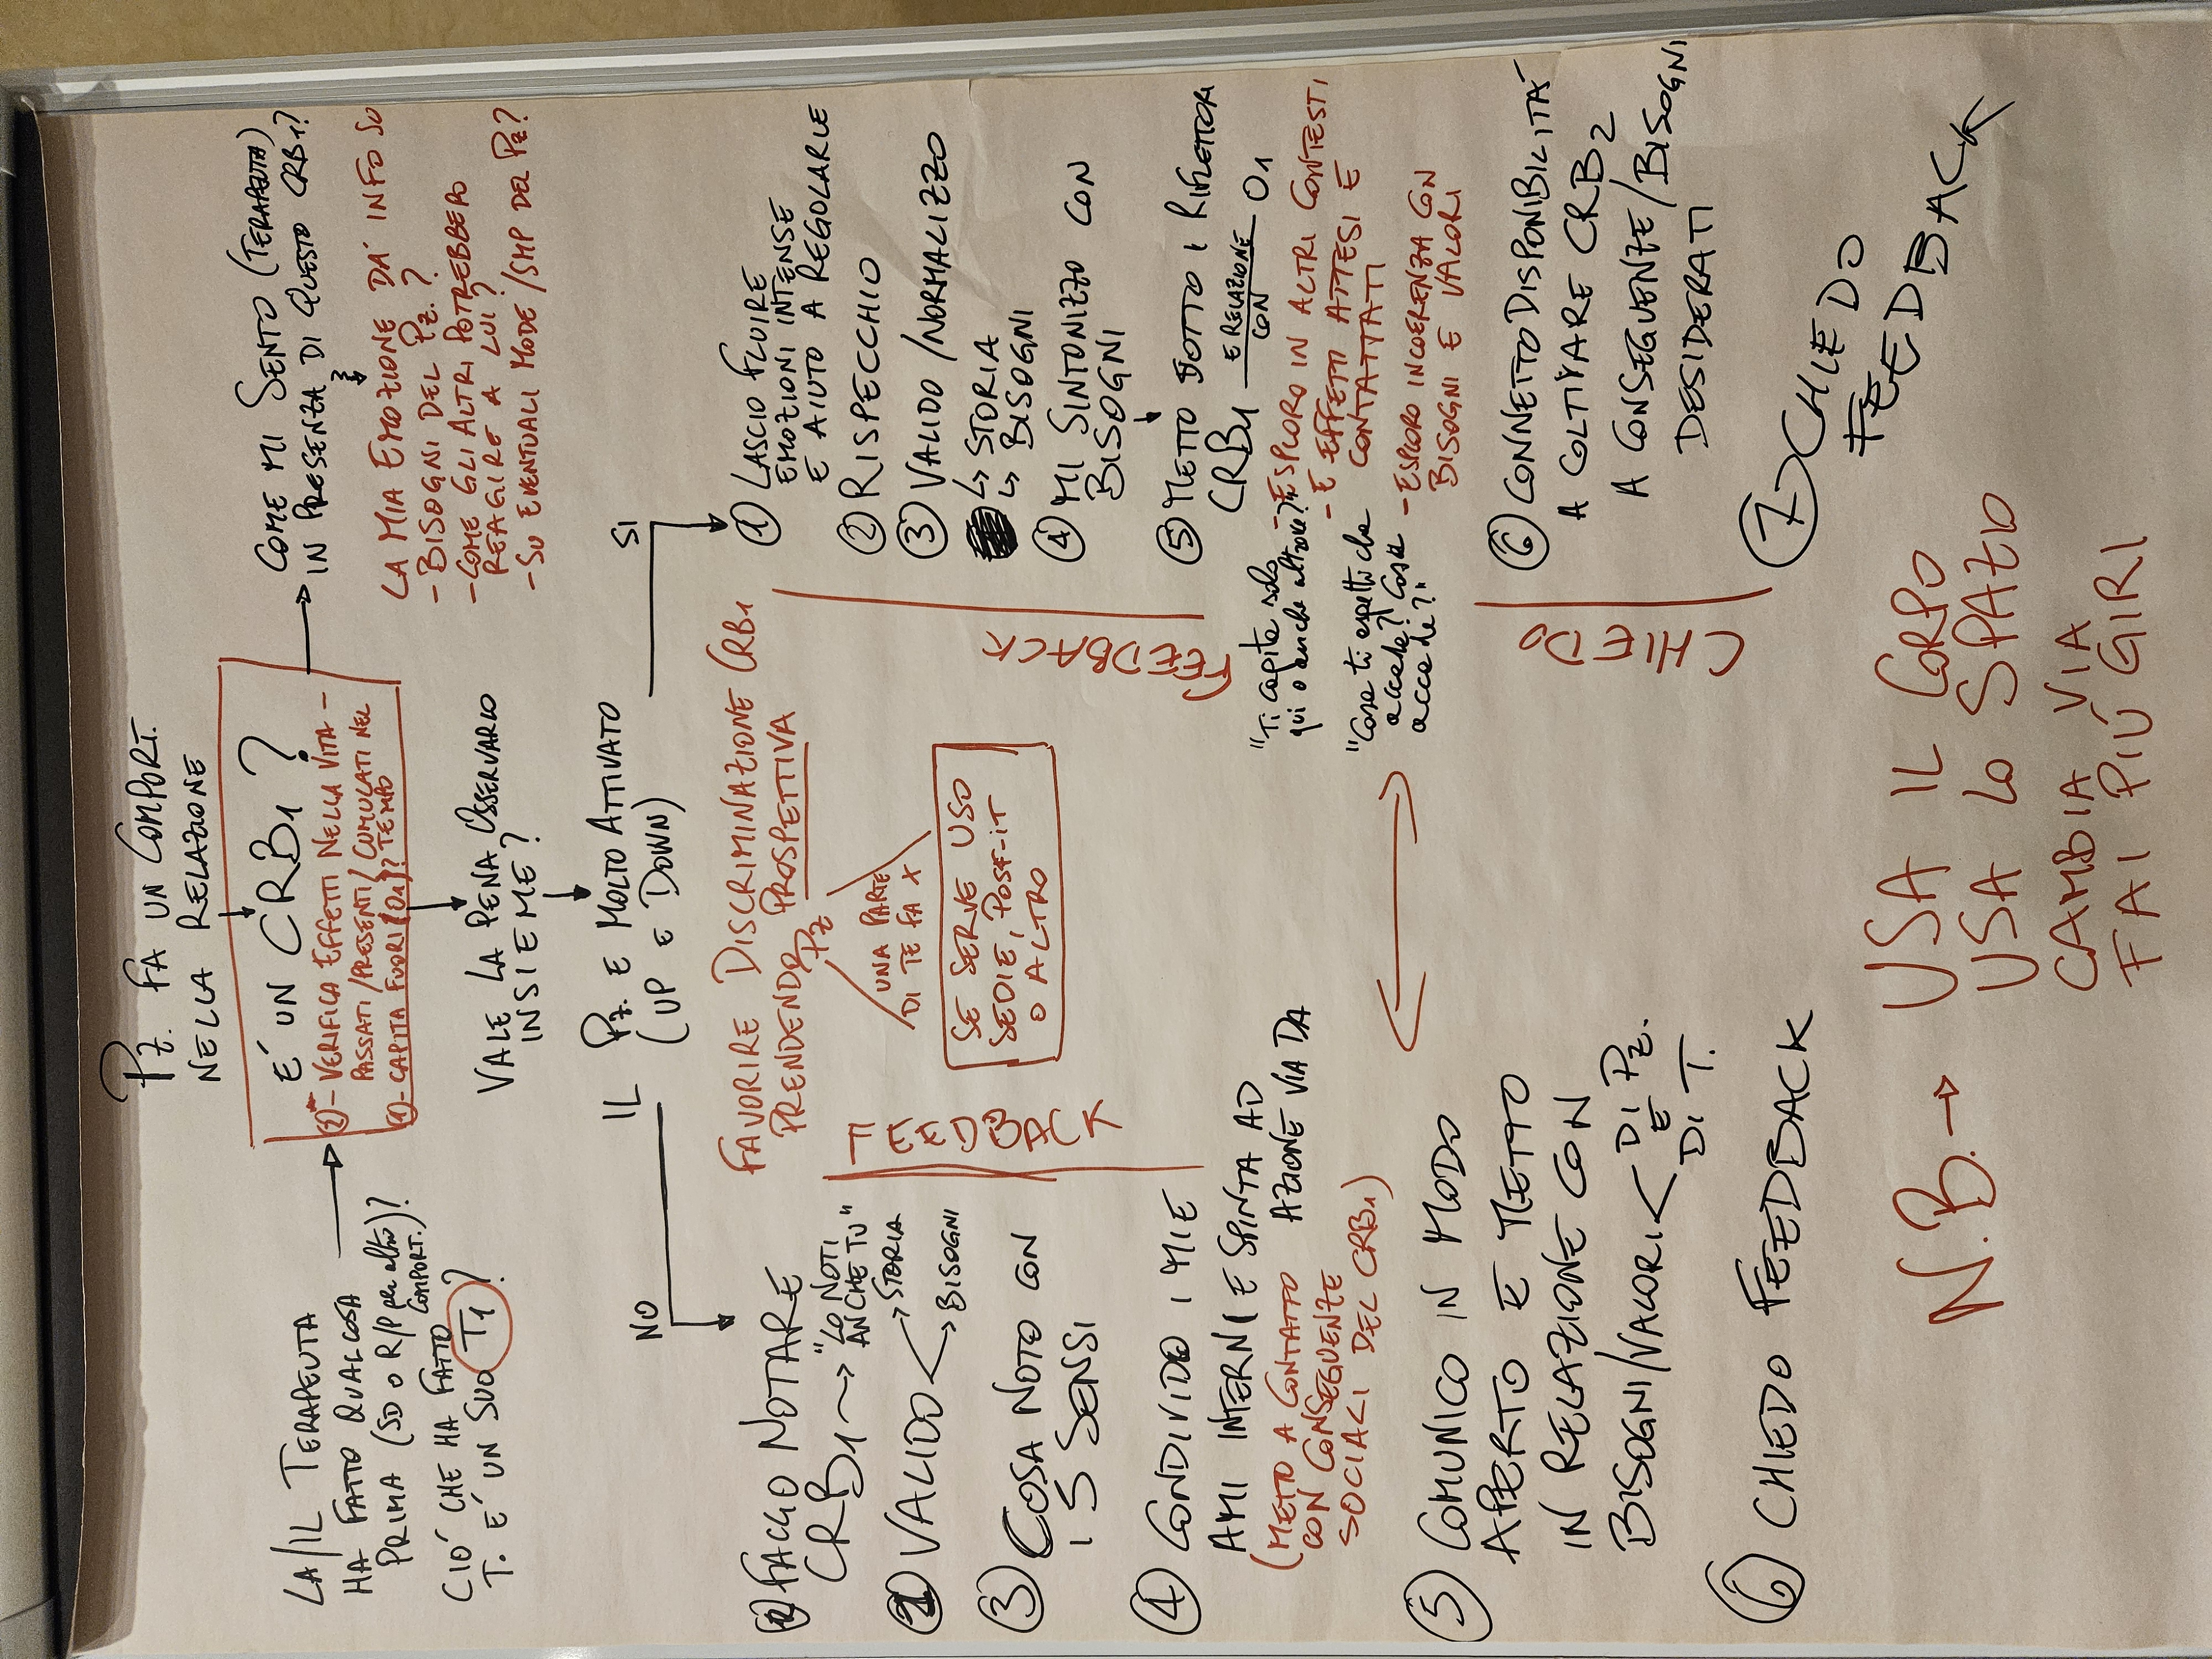 PZ. FA UN COMPORT.
NELLA RELAZIONE
LA/IL TERAPEUTA
HA FATTO QUALCOSA
PRIMA (SD O R/P per altro
COMPORT.)?
CIÒ CHE HA FATTO
T. E' UN SUO T1?
E' UN CRB1?
2)- VERIFICA EFFETTI NELLA VITA -
PASSATI/PRESENTI/CUMULATI NEL
TEMPO
1)- CAPITA FUORI (O1)?
COME MI SENTO (TERAPEUTA)
IN PRESENZA DI QUESTO CRB1?
LA MIA EMOZIONE DA' INFO SU
- BISOGNI DEL PZ.?
- COME GLI ALTRI POTREBBERO
REAGIRE A LUI?
- SU EVENTUALI MODE/SMP DEL PZ?
VALE LA PENA OSSERVARLO
INSIEME?
IL PZ. E MOLTO ATTIVATO
(UP E DOWN)
NO
SI
FAVORIRE DISCRIMINAZIONE CRB1
PRENDENDO PROSPETTIVA
PZ
UNA PARTE
DI TE FA X
SE SERVE USO
SEDIE, POST-IT
O ALTRO
FEEDBACK
1 FAGGO NOTARE
CRB1 → "LO NOTI
ANCHE TU"
2 VALIDO → STORIA
→ BISOGNI
3 COSA NOTO CON
I 5 SENSI
4 CONDIVIDO I MIE
AMI INTERNI E SPINTA AD
AZIONE VIA DA
(METTO A CONTATTO
CON CONSEGUENZE
SOCIALI DEL CRB1)
5 COMUNICO IN MODO
APERTO E METTO
IN RELAZIONE CON
BISOGNI/VALORI < DI PZ.
E
DI T.
6 CHIEDO FEEDBACK
1 LASCIO FLUIRE
EMOZIONI INTENSE
E AIUTO A REGOLARLE
2 RISPECCHIO
3 VALIDO/NORMALIZZO
↳ STORIA
↳ BISOGNI
4 MI SINTONIZZO CON
BISOGNI
5 METTO SOTTO I RIFLETTORI
CRB1 E RELAZIONE CON O1
- ESPLORO IN ALTRI CONTESTI
- E EFFETTI ATTESI E
CONTATTATI
- ESPLORO INCOERENZA CON
BISOGNI E VALORI
"Ti capita solo
qui o anche altrove?"
"Cosa ti aspetti che
accade? Cosa
accade?"
6 CONNETTO DISPONIBILITA'
A COLTIVARE CRB2
A CONSEGUENZE/BISOGNI
DESIDERATI
7 CHIEDO
FEEDBACK
FEEDBACK
CHIEDO
N.B. → USA IL CORPO
USA LO SPAZIO
CAMBIA VIA
FAI PIÙ GIRI